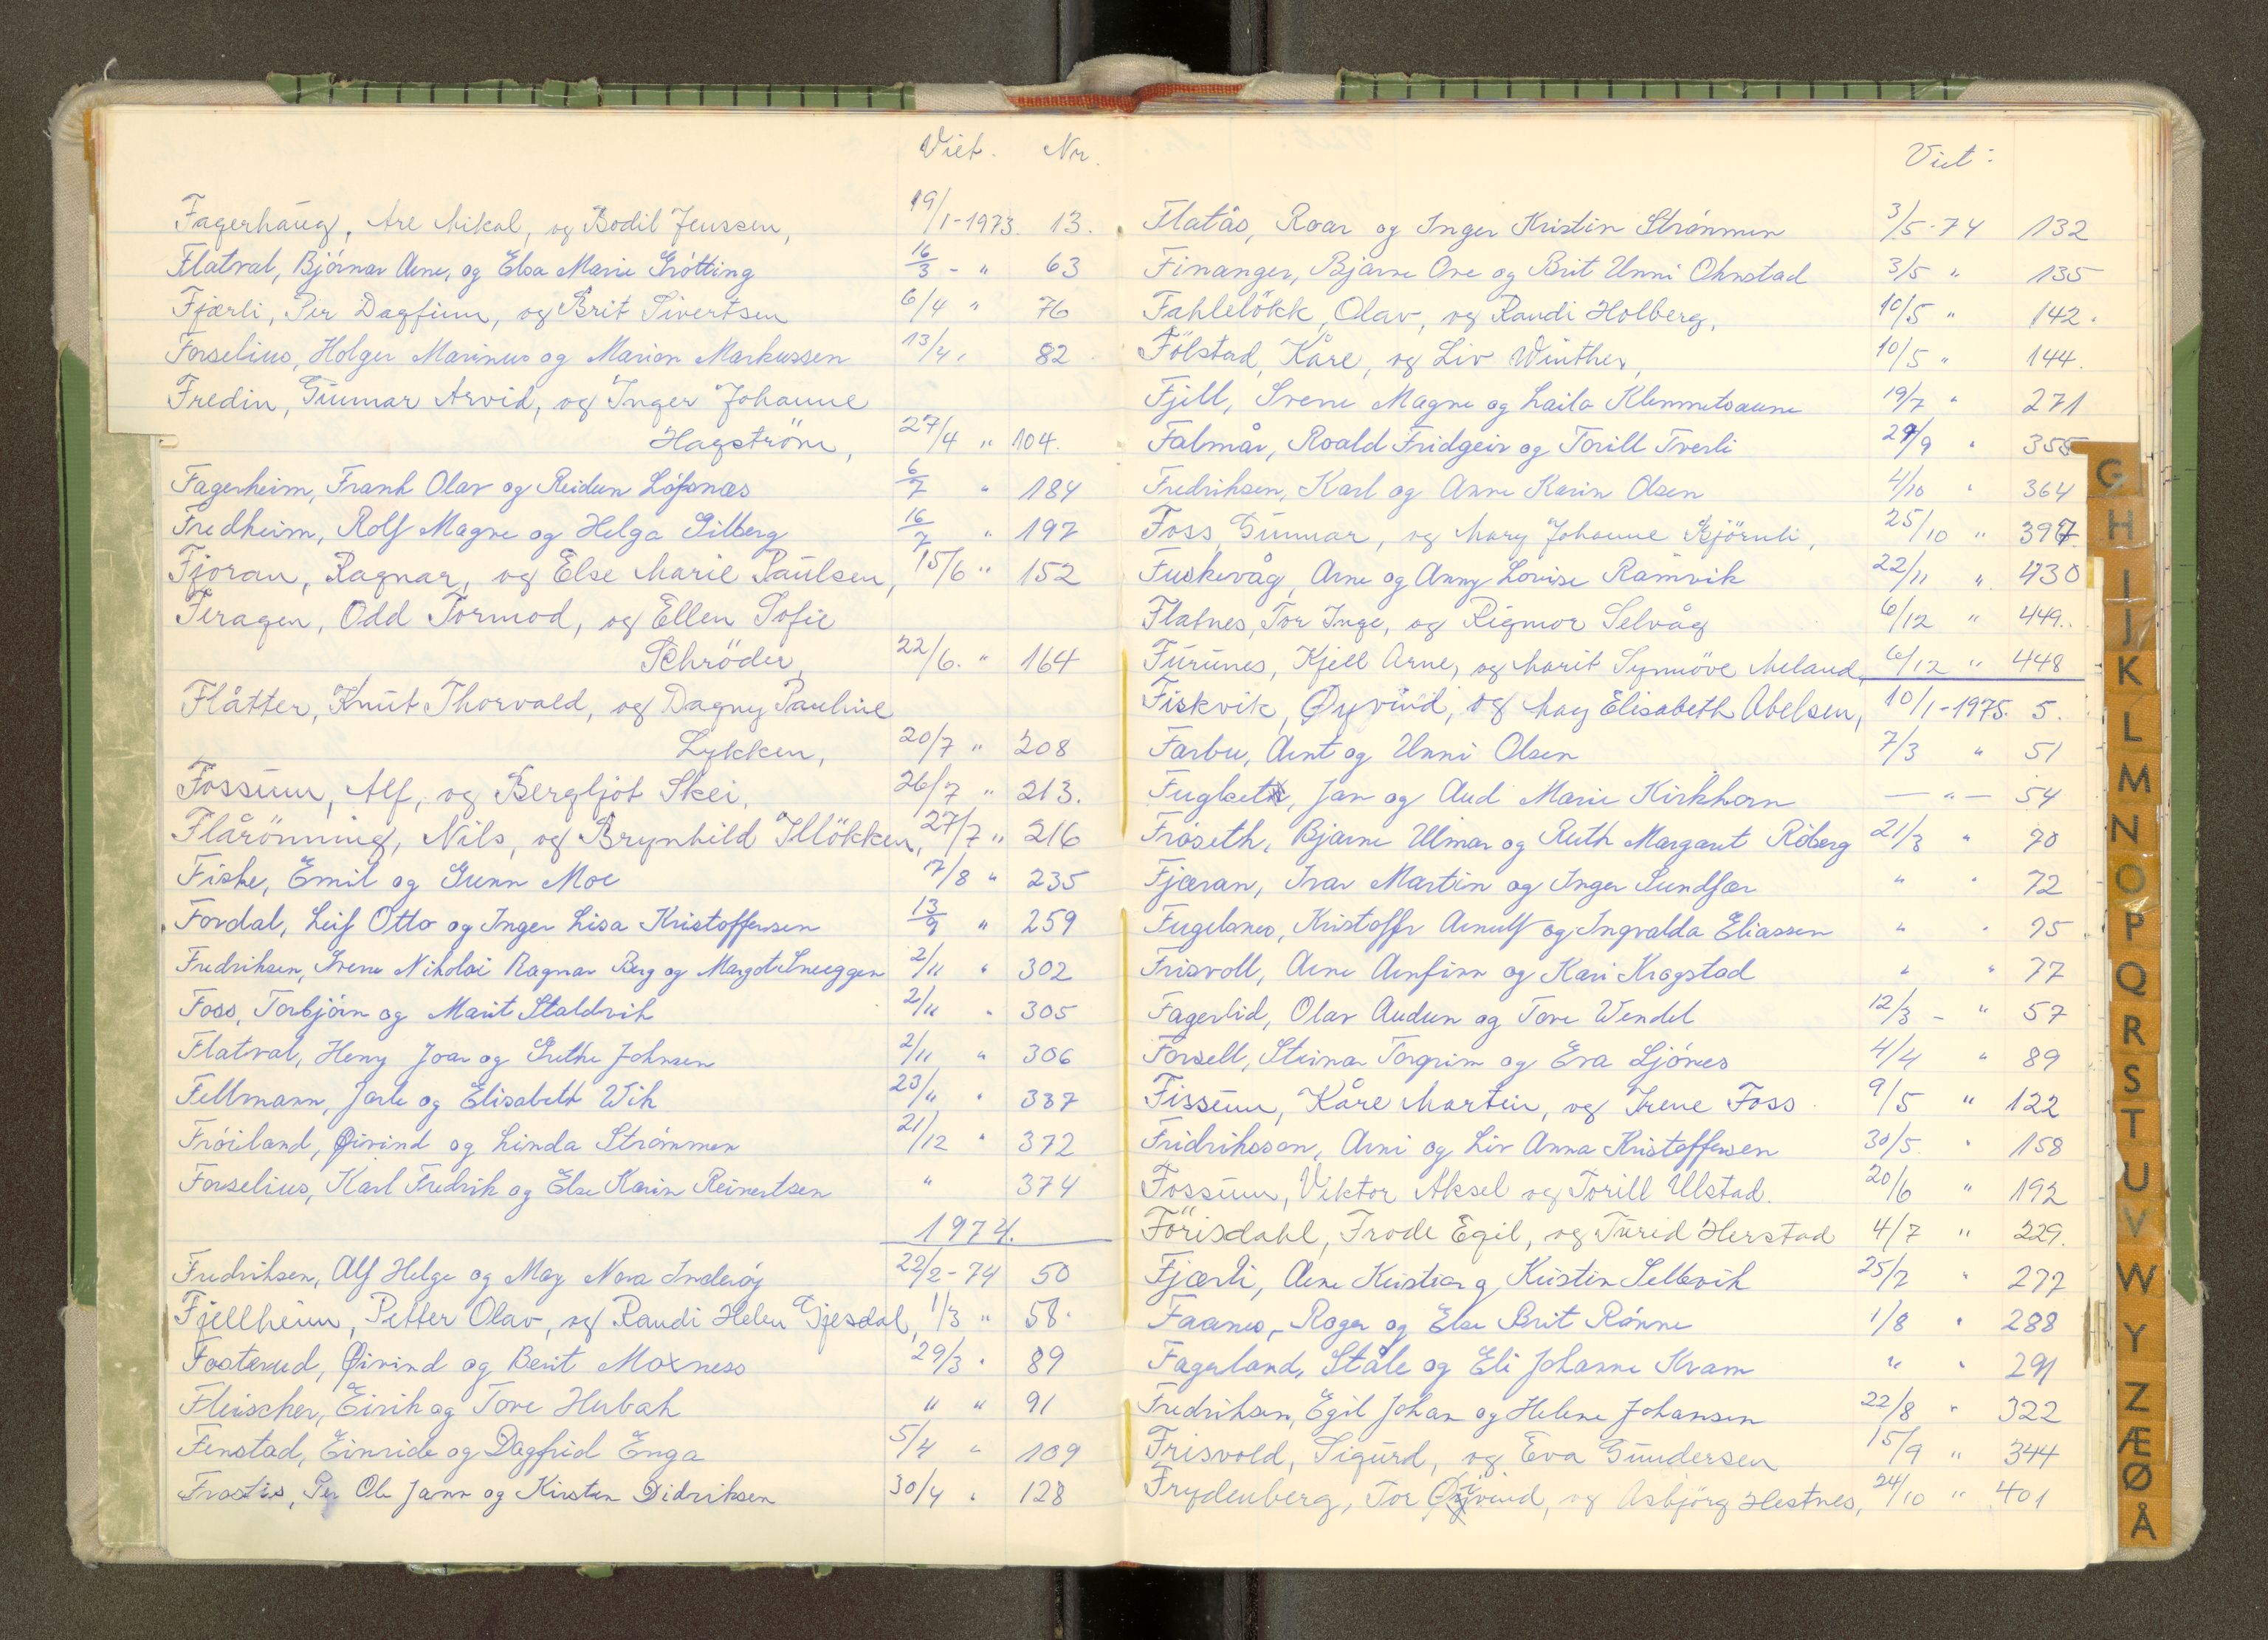 Viet. Nr.
Fagerhaug, Are Mikal, og Bodil Jenssen, 19/1-1973. 13.
Flatval, Bjørnar Arne, og Elsa Marie Grøtting 16/3 - " 63
Fjærli, Per Dagfinn, og Brit Sivertsen 6/4 " 76
Forselius, Holger Marinus og Marion Markussen 13/4 " 82
Fredin, Gunnar Arvid, og Inger Johanne
Hagström, 27/4 " 104.
Fagerheim, Frank Olav og Reidun Løfsnæs 6/7 " 184
Fredheim, Rolf Magne og Helga Gilberg 16/7 " 197
Fjøran, Ragnar, og Else Marie Paulsen, 15/6 " 152
Feragen, Odd Tormod, og Ellen Sofie
Schröder, 22/6. " 164
Flåtter, Knut Thorvald, og Dagny Pauline
Lykken, 20/7 " 208
Fossum, Alf, og Bergljot Skei, 26/7 " 213.
Flårönning, Nils, og Brynhild Illökken, 27/7 " 216
Fiske, Emil og Gunn Moe 7/8 " 235
Fordal, Leif Otto og Inger Lisa Kristoffersen 13/9 " 259
Fredriksen, Svenn Nikolai Ragnar Berg og Margot Sneeggen 2/11 " 302
Foss, Torbjørn og Marit Staldvik 2/11 " 305
Flatval, Henry Joar og Grethe Johnsen 2/11 " 306
Fellmann, Jarle og Elisabeth Wik 23/11 " 337
Frøiland, Øivind og Linda Strømmen 21/12 " 372
Forselius, Karl Fredrik og Else Karin Reinertsen " 374
1974.
Fredriksen, Alf Helge og May Nora Inderøy 22/2-74 50
Fjellheim, Petter Olav, og Randi Helen Gjesdal, 1/3 " 58.
Fosterud, Øivind og Berit Moxness 29/3 " 89
Fleischer, Eirik og Tove Hubak " " 91
Fenstad, Einride og Dagfrid Enga 5/4 " 109
Frostis, Per Ole Jann og Kirsten Didriksen 30/4 " 128
Viet:
Flatås, Roar og Inger Kristin Strømmen 3/5-74 132
Finanger, Bjarne Ove og Brit Unni Ohnstad 3/5 " 135
Fahlelökk, Olav, og Randi Holberg, 10/5 " 142.
Fölstad, Kåre, og Liv Winther, 10/5 " 144.
Fjell, Svenn Magne og Laila Klemmetsaune 19/7 " 271
Falmår, Roald Fridgeir og Torill Tverli 27/9 " 355
Fredriksen, Karl og Anne Karin Olsen 4/10 " 364
Foss, Gunnar, og Mary Johanne Bjørnli, 25/10 " 397
Fuskevåg, Arne og Anny Lovise Ramvik 22/11 " 430
Flatnes, Tor Inge, og Rigmor Selvåg 6/12 " 449.
Furunes, Kjell Arne, og Marit Synnöve Meland, 6/12 " 448
Fiskvik, Øyvind, og May Elisabeth Abelsen, 10/1-1975. 5.
Farbu, Arnt og Unni Olsen 7/3 " 51
Fuglset, Jan og Aud Marie Kirkhorn — " — 54
Frøseth, Bjarne Ulmar og Ruth Margaret Røberg 21/3 " 70
Fjæran, Ivar Martin og Inger Sundfær " " 72
Fugelsnes, Kristoffer Arnulf og Ingvalda Eliassen " " 75
Frisvoll, Arne Arnfinn og Kari Krogstad " " 77
Fagerlid, Olav Audun og Tove Wendel 12/3 - " 57
Forsell, Steinar Torgrim og Eva Ljønes 4/4 " 89
Fissum, Kåre Martin, og Irene Foss. 9/5 " 122
Fridriksson, Arni og Liv Anna Kristoffersen 30/5. " 158
Fossum, Viktor Aksel og Torill Ulstad. 20/6 " 192
Förisdahl, Frode Egil, og Turid Herstad 4/7 " 229.
Fjærli, Arne Kristian og Kristin Sellevik 25/7 " 277
Faanes, Roger og Else Brit Rønne 1/8 " 288
Fagerland, Ståle og Eli Johanne Kvam " " 291
Fredriksen, Egil Johan og Helene Johansen 22/8 " 322
Frisvold, Sigurd, og Eva Gundersen 15/9 " 344
Frydenberg, Tor Øivind, og Asbjørg Hestnes, 24/10 " 401
G
H
I
J
K
L
M
N
O
P
Q
R
S
T
U
V
W
Y
Z
Æ
Ø
Å